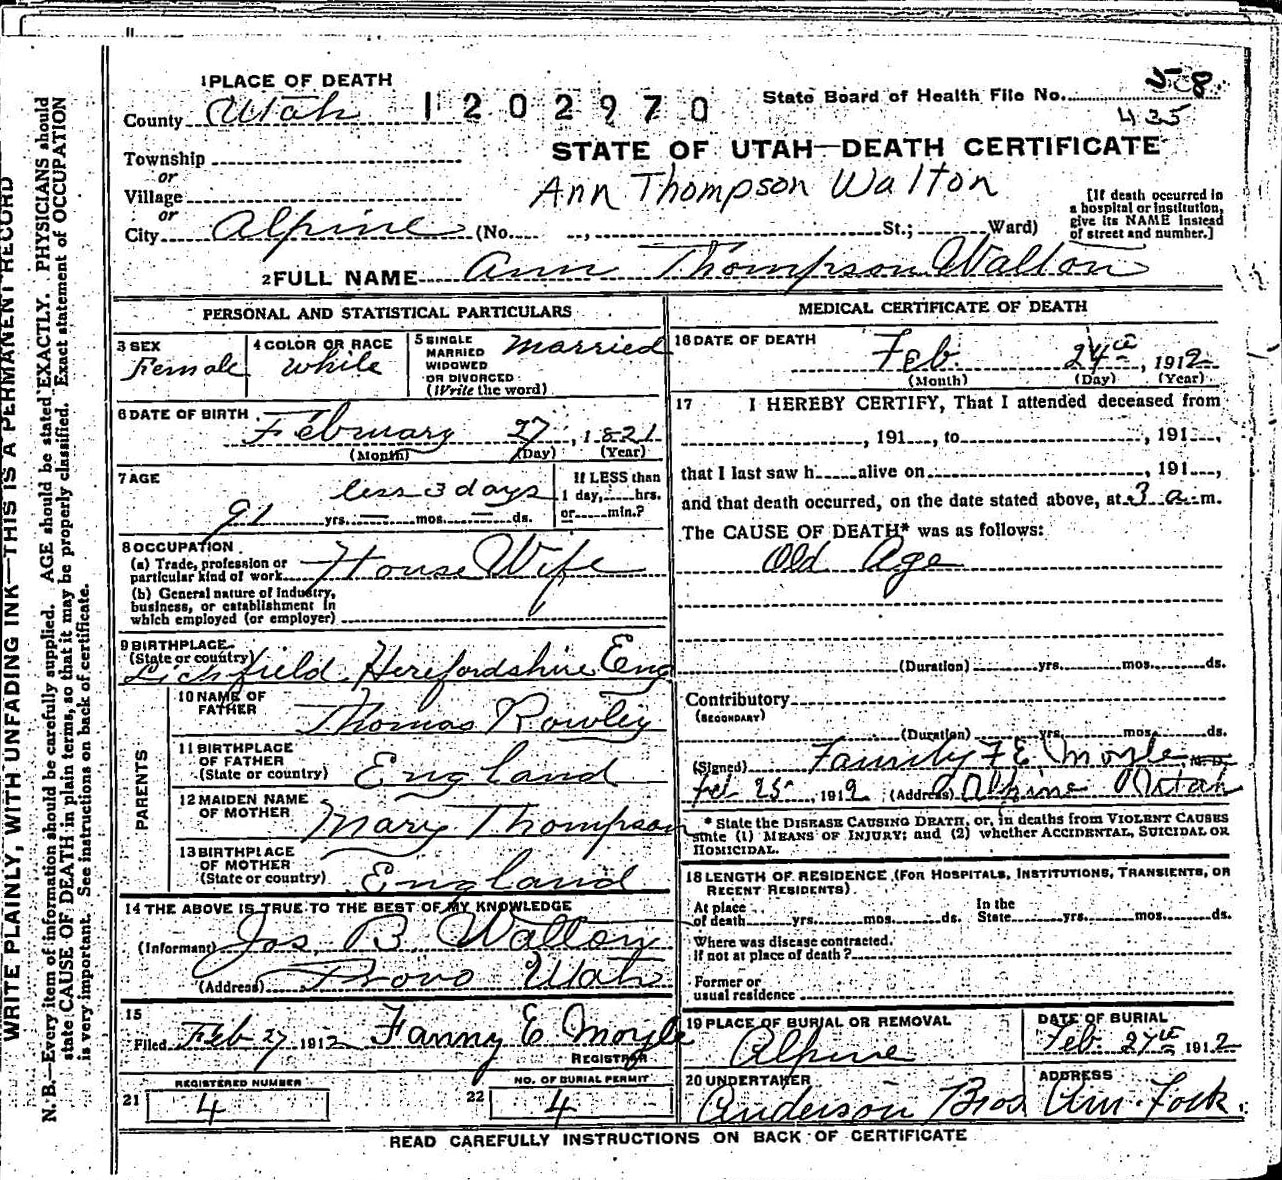 1 PLACE OF DEATH
County Utah
1202970
State Board of Health File No. 58
435
STATE OF UTAH—DEATH CERTIFICATE
Ann Thompson Walton
Township
or
Village
or
City Alpine (No. , St.; Ward)
[If death occurred in
a hospital or institution,
give its NAME instead
of street and number.]
2 FULL NAME Ann Thompson Walton
PERSONAL AND STATISTICAL PARTICULARS
3 SEX
Female
4 COLOR OR RACE
White
5 SINGLE
MARRIED
WIDOWED
OR DIVORCED
(Write the word)
Married
6 DATE OF BIRTH
February 27, 1821
(Month) (Day) (Year)
7 AGE
less 3 days
91 yrs. — mos. — ds.
If LESS than
1 day, hrs.
or min.?
8 OCCUPATION
(a) Trade, profession or
particular kind of work House Wife
(b) General nature of industry,
business, or establishment in
which employed (or employer)
9 BIRTHPLACE
(State or country)
Lichfield Herefordshire Eng
PARENTS
10 NAME OF
FATHER
Thomas Rowley
11 BIRTHPLACE
OF FATHER
(State or country) England
12 MAIDEN NAME
OF MOTHER Mary Thompson
13 BIRTHPLACE
OF MOTHER
(State or country) England
14 THE ABOVE IS TRUE TO THE BEST OF MY KNOWLEDGE
(Informant) Jos B Walton
(Address) Provo Utah
15
Filed Feb 27 1912 Fanny E Moyle
REGISTRAR
REGISTERED NUMBER
21 4
NO. OF BURIAL PERMIT
22 4
MEDICAL CERTIFICATE OF DEATH
16 DATE OF DEATH
Feb. 24th, 1912
(Month) (Day) (Year)
17 I HEREBY CERTIFY, That I attended deceased from
, 191 , to , 191 ,
that I last saw h alive on , 191 ,
and that death occurred, on the date stated above, at 3 a.m.
The CAUSE OF DEATH* was as follows:
Old Age
(Duration) yrs. mos. ds.
Contributory
(SECONDARY)
(Duration) yrs. mos. ds.
(Signed) F E Moyle M.D.
Feb 25, 1912 (Address) Alpine Utah
* State the DISEASE CAUSING DEATH, or, in deaths from VIOLENT CAUSES
state (1) MEANS OF INJURY; and (2) whether ACCIDENTAL, SUICIDAL OR
HOMICIDAL.
18 LENGTH OF RESIDENCE (FOR HOSPITALS, INSTITUTIONS, TRANSIENTS, OR
RECENT RESIDENTS).
At place
of death yrs. mos. ds.
In the
State yrs. mos. ds.
Where was disease contracted.
If not at place of death?
Former or
usual residence
19 PLACE OF BURIAL OR REMOVAL
Alpine
DATE OF BURIAL
Feb. 27th 1912
20 UNDERTAKER
Anderson Bros
ADDRESS
Am. Fork.
READ CAREFULLY INSTRUCTIONS ON BACK OF CERTIFICATE
WRITE PLAINLY, WITH UNFADING INK—THIS IS A PERMANENT RECORD
N. B.—Every item of information should be carefully supplied. AGE should be stated EXACTLY. PHYSICIANS should
state CAUSE OF DEATH in plain terms, so that it may be properly classified. Exact statement of OCCUPATION
is very important. See instructions on back of certificate.